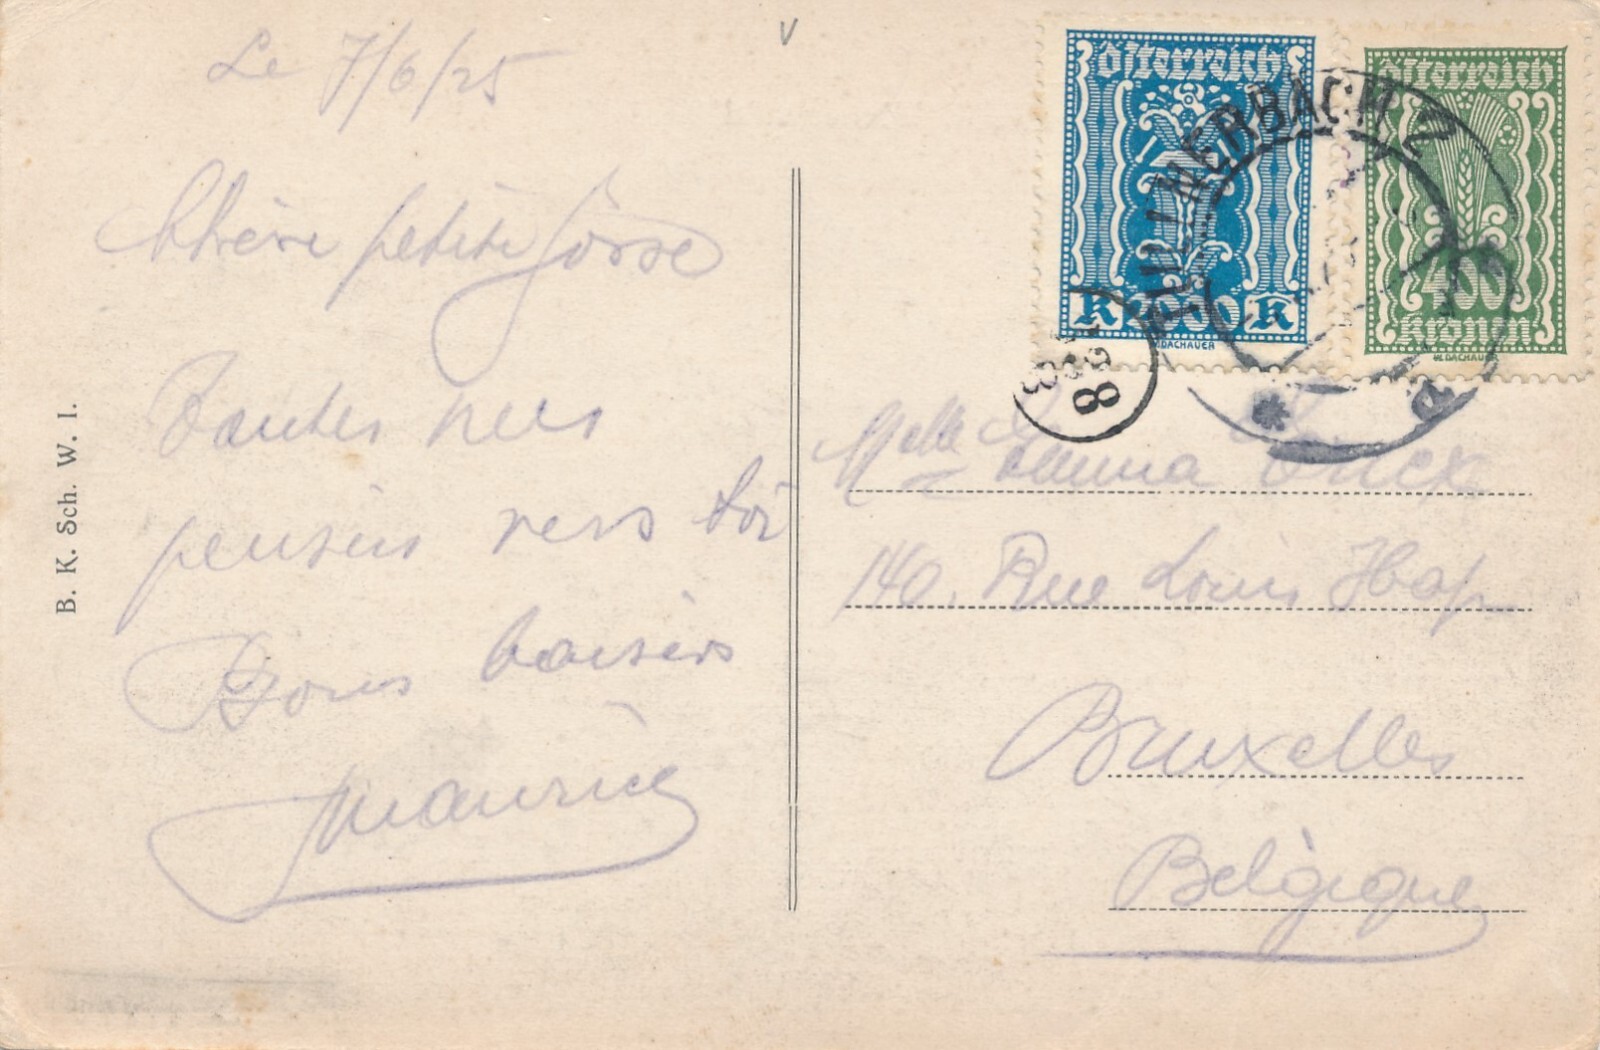 Le 7/6/25
Chère petite Gosse
Toutes mes
pensées vers toi
Bons baisers
Maurice
B. K. Sch. W. I.
Österreich
K 2000 K
W.DACHAUER
Österreich
400
Kronen
W.DACHAUER
8
Melle Emma
140. Rue Louis Hap
Bruxelles
Belgique